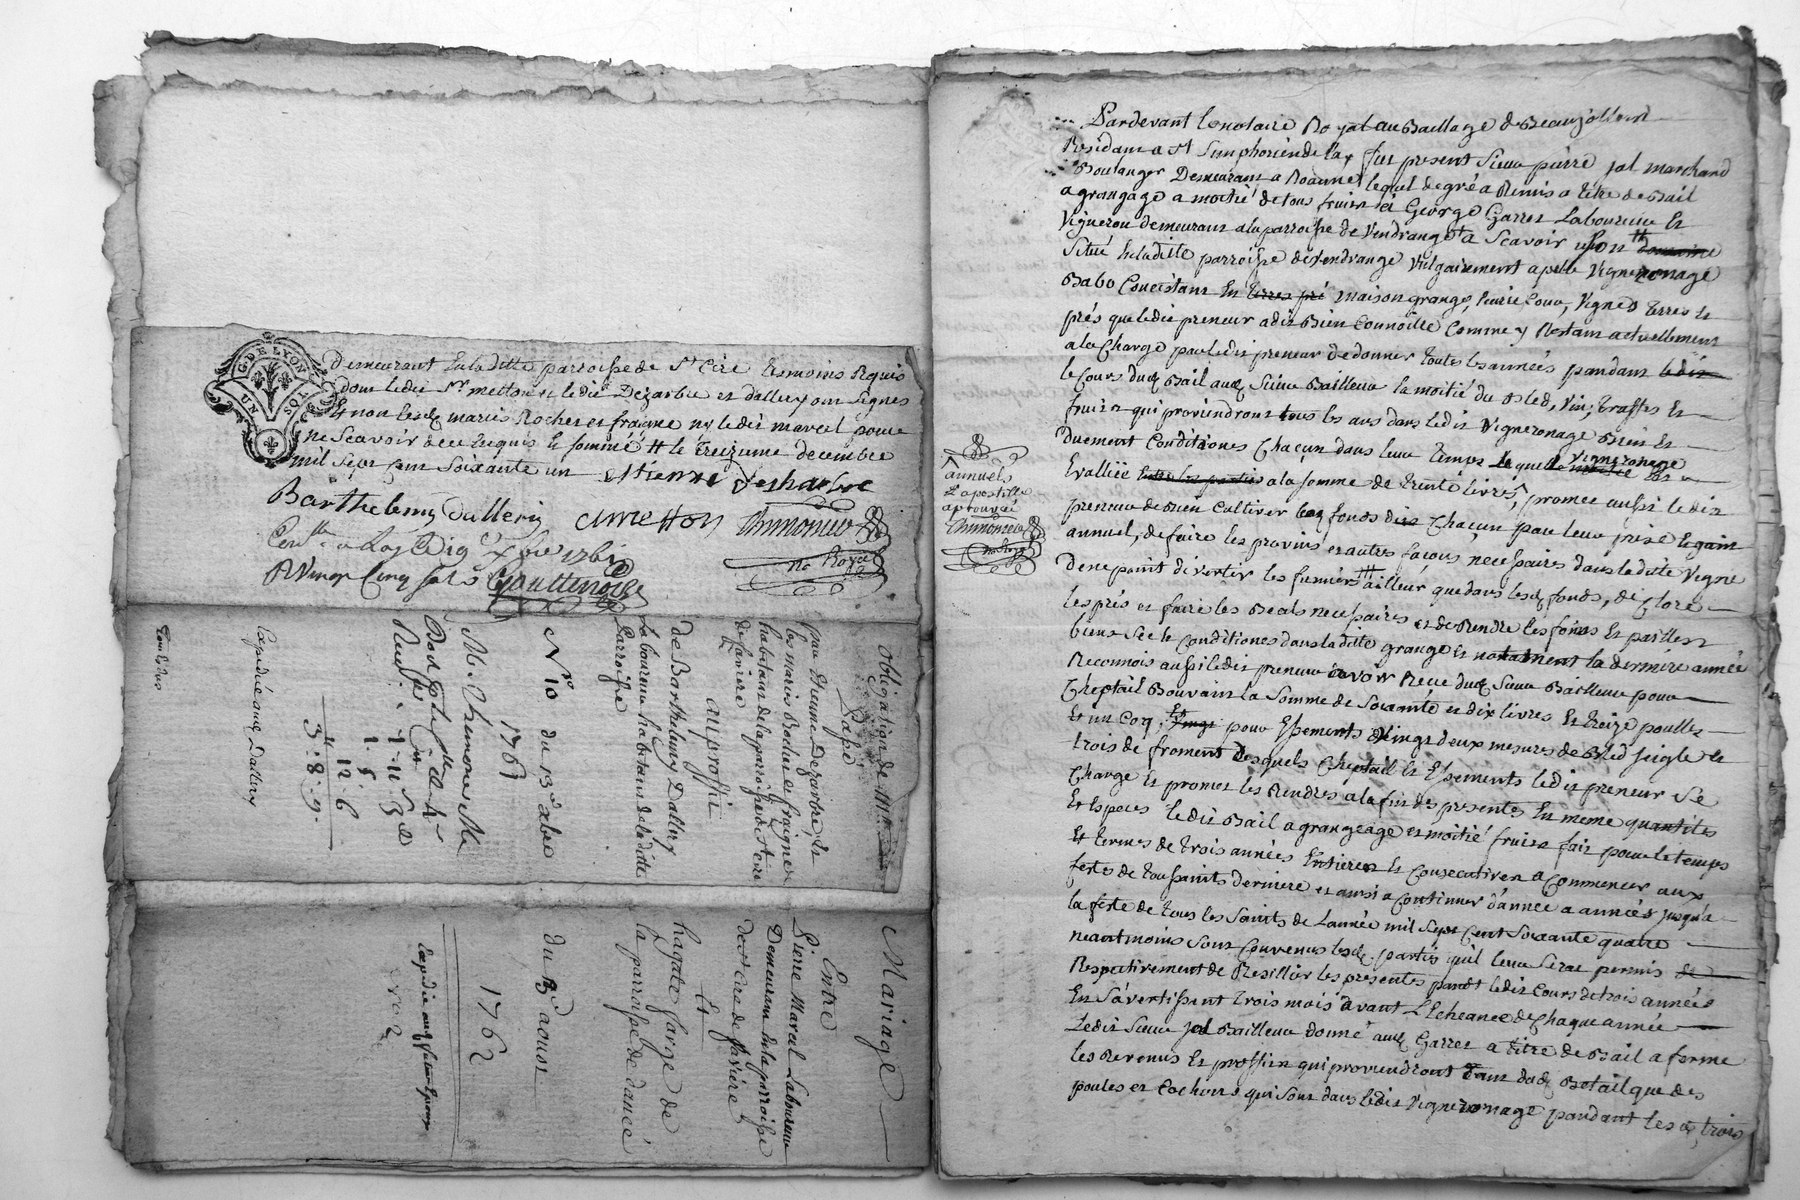 G. DE LYON
UN SOL
Demeurant En laditte parroisse de St Cire tesmoins Requis
dont ledit Sr metton et le dit Dezarbre et dallery ont signés
Et non lesdq mariés Rocher et fraigne ny ledit marcel pour
ne Scavoir de ce Enquis Et sommé le treizieme decembre
mil Sept cent Soixante un
Estienne desharbre
Barthelemy Dallery
C Metton
Chimonive
no Royal
1761
R Vingt Cinq sols
Obligation de
Papé
par Etienne Dezarbre, et
les mariés Rocher et fraigne
habitans de la parroisse de St Cire
de favieres
au proffit
de Barthelemy Dallery
Laboureur habitant de laditte
parroisse
No 10 du 13e xbre
1761
1 - 11 - 3
1 - 5
12 - 6
3 - 8 - 9
Expédié aud Dallery
Mariage
Entre
Pierre Marcel Laboureur
Demeurant En la parroisse
de St Cire de favieres
Et
hagate farge de
la parroisse de dancé
du 8e aoust
1762
Expédié auxq futur Epoux
Pardevant le notaire Royal au Baillage de Beaujollois
Residant a St Simphorien de Lay fut present Sieur pierre jal marchand
Boulanger Demeurant a Roanne lequel de gré a Remis a titre de Bail
a grangage a moitié de tous fruits à George Garret Laboureur Et
Vigneron demeurant a la parroisse de Vendrange a Scavoir un domaine
Situé En laditte parroisse de Vendrange Vulgairement apellé Vigneronage
Babo Concistant En terres pré maison grange, Ecurie Cour, Vignes terres Et
prés que ledit preneur a dit Bien Connoitre Comme y Restant actuellement
a la Charge par ledit preneur de donner toutes les années pandant ledit
le Cours dudq Bail audq Sieur Bailleur la moitié du Bled, Vin, traffes Et
fruits qui proviendront tous les ans dans ledit Vigneronage Bien Et
Duement Conditionés Chaqun dans leur temps Lequel Vigneronage
annuels
L'apostille
aprouvée
Chimonive
no Royal
Evallué Entre les parties a la somme de trente livres, promet aussi ledit
preneur de bien Cultiver lesq fonds dits Chaqun par leur prise Et gain
annuel, de faire les provins et autres façons necessaires dans laditte Vigne
De ne point divertir les fumiers ailleur que dans lesdq fonds, de Clore
Les prés et faire les Beals necessaires et de Rendre les foins Et pailles
bien Sec & Conditionés dans laditte grange et notamment la derniere année
Reconnois aussi ledit preneur avoir Receu dudq Sieur Bailleur pour
Cheptail Bouvain la Somme de Soixante et dix livres Et treize poulles
Et un Coq, Et Vingt pour Esements Vingt deux mesures de Bled Seigle &
trois de froment Desquels Cheptail Et Esements ledit preneur Se
Charge Et promet les Rendres a la fin des presentes En meme quantités
Et Especes ledit Bail a grangeage et moitié fruits fait pour le temps
Et termes de trois années Entieres Et Consecutives a Commencer aux
feste de toussaints derniere et ainsi a Continuer d'année a années jusqu'a
la feste de tous les Saints de L'année mil Sept Cent Soixante quatre
neantmoins Sont Convenus lesdq. partis qu'il leur Sera permis
Respectivement de Resillier les presentes pandt ledit Cours de trois années
En S'avertissant trois mois avant L'Echeance de Chaque année
Ledit Sieur jal Bailleur donne audq Garret a titre de Bail a ferme
les Revenus Et proffits qui proviendront dudq Betail que des
poules et Cochons qui sont dans ledit Vigneronage pandant les dq trois